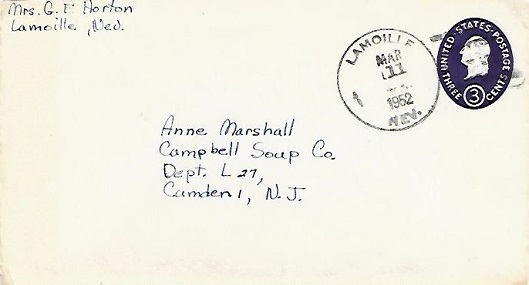 Mrs. G. F. Horton
Lamoille, Nev.
LAMOILLE
MAR
11
1952
NEV.
UNITED STATES POSTAGE
3
THREE CENTS
Anne Marshall
Campbell Soup Co.
Dept. L 27,
Camden 1, N. J.